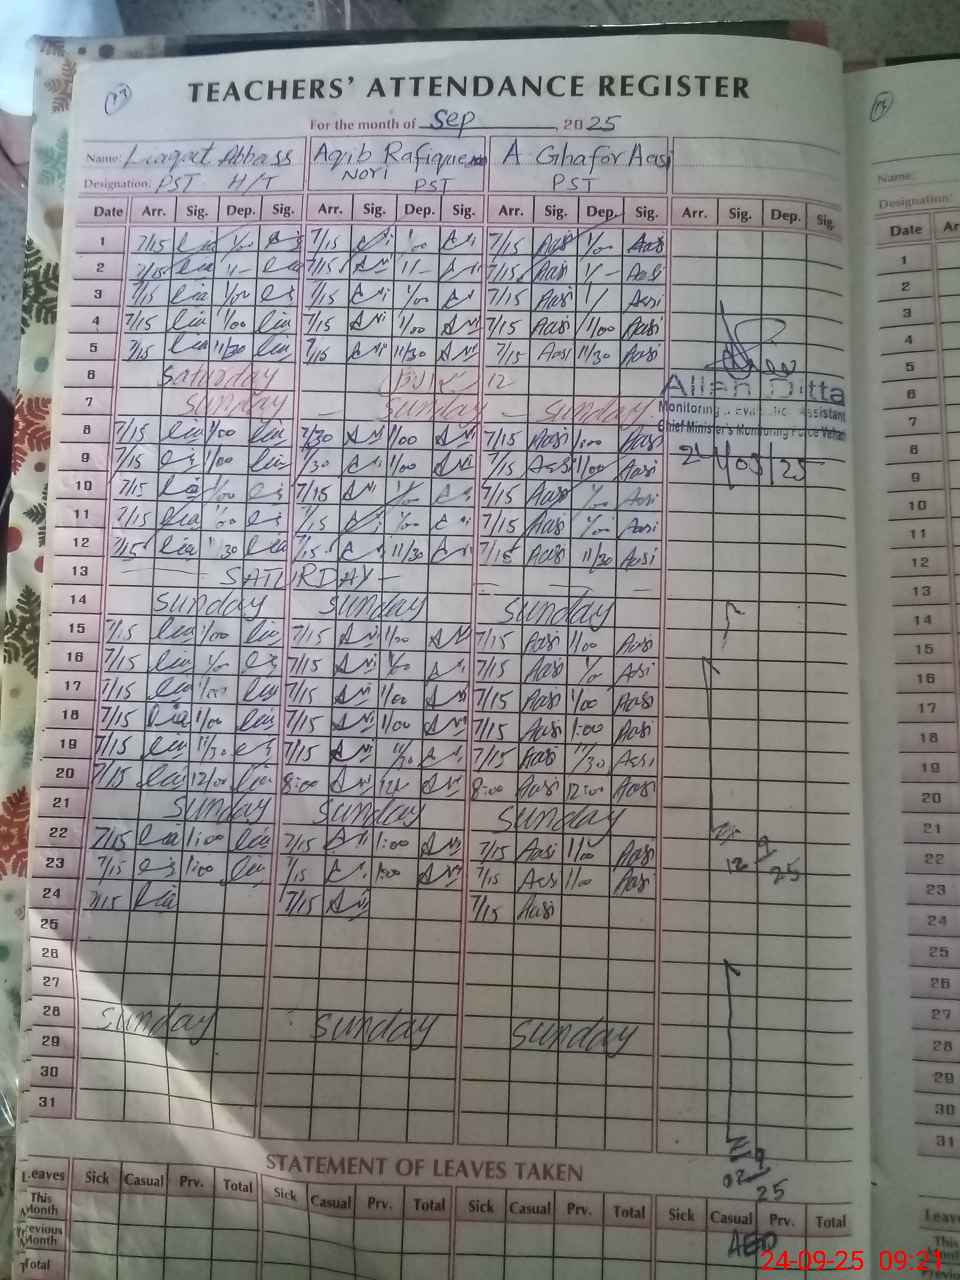 TEACHERS' ATTENDANCE REGISTER
For the month of Sep, 2025
Name: Liaqat Abbass Aqib Rafique Nori A Ghafor Aasi
Designation: PST H/T PST PST
Date Arr. Sig. Dep. Sig. Arr. Sig. Dep. Sig. Arr. Sig. Dep. Sig. Arr. Sig. Dep. Sig.
1 7/15 lia 1/00 7/15 1/00 7/15 Aasi 1/00 Aasi
2 7/15 lia 1/- lia 7/15 1/- 7/15 Aasi 1/- Aasi
3 7/15 lia 1/00 7/15 1/00 7/15 Aasi 1/ Aasi
4 7/15 lia 1/00 lia 7/15 1/00 7/15 Aasi 1/00 Aasi
5 7/15 lia 11/30 lia 7/15 11/30 7/15 Aasi 11/30 Aasi
6 Saturday 12
7 Sunday Sunday Sunday
8 7/15 lia 1/00 lia 7/30 1/00 7/15 Aasi 1:00 Aasi
9 7/15 1/00 lia 7/30 1/00 7/15 Aasi 1/00 Aasi
10 7/15 lia 1/00 7/15 1/00 7/15 Aasi 1/00 Aasi
11 7/15 lia 1/00 7/15 1/00 7/15 Aasi 1/00 Aasi
12 7/15 lia 11/30 lia 7/15 11/30 7/15 Aasi 11/30 Aasi
13 SATURDAY
14 Sunday Sunday Sunday
15 7/15 lia 1/00 lia 7/15 1/00 7/15 Aasi 1/00 Aasi
16 7/15 lia 1/00 7/15 1/00 7/15 Aasi 1/00 Aasi
17 7/15 lia 1/00 lia 7/15 1/00 7/15 Aasi 1/00 Aasi
18 7/15 lia 1/00 lia 7/15 1/00 7/15 Aasi 1:00 Aasi
19 7/15 lia 11/30 7/15 11/30 7/15 Aasi 11/30 Aasi
20 7/15 lia 12/00 lia 8:00 12/ 8:00 Aasi 12:00 Aasi
21 Sunday Sunday Sunday
22 7/15 lia 1:00 lia 7/15 1:00 7/15 Aasi 1/00 Aasi
23 7/15 1:00 lia 7/15 1:00 7/15 Aasi 1/00 Aasi
24 7/15 lia 7/15 7/15 Aasi
25
26
27
28 Sunday Sunday Sunday
29
30
31
Allah Ditta
Monitoring & Evaluation Assistant
Chief Minister's Monitoring Force Vehari
12 9 25
STATEMENT OF LEAVES TAKEN
Leaves Sick Casual Prv. Total Sick Casual Prv. Total Sick Casual Prv. Total Sick Casual Prv. Total
This Month
Previous Month
Total
02 9 25
AEO
Name:
Designation:
Date
1
2
3
4
5
6
7
8
9
10
11
12
13
14
15
16
17
18
19
20
21
22
23
24
25
26
27
28
29
30
31
24-09-25 09:21